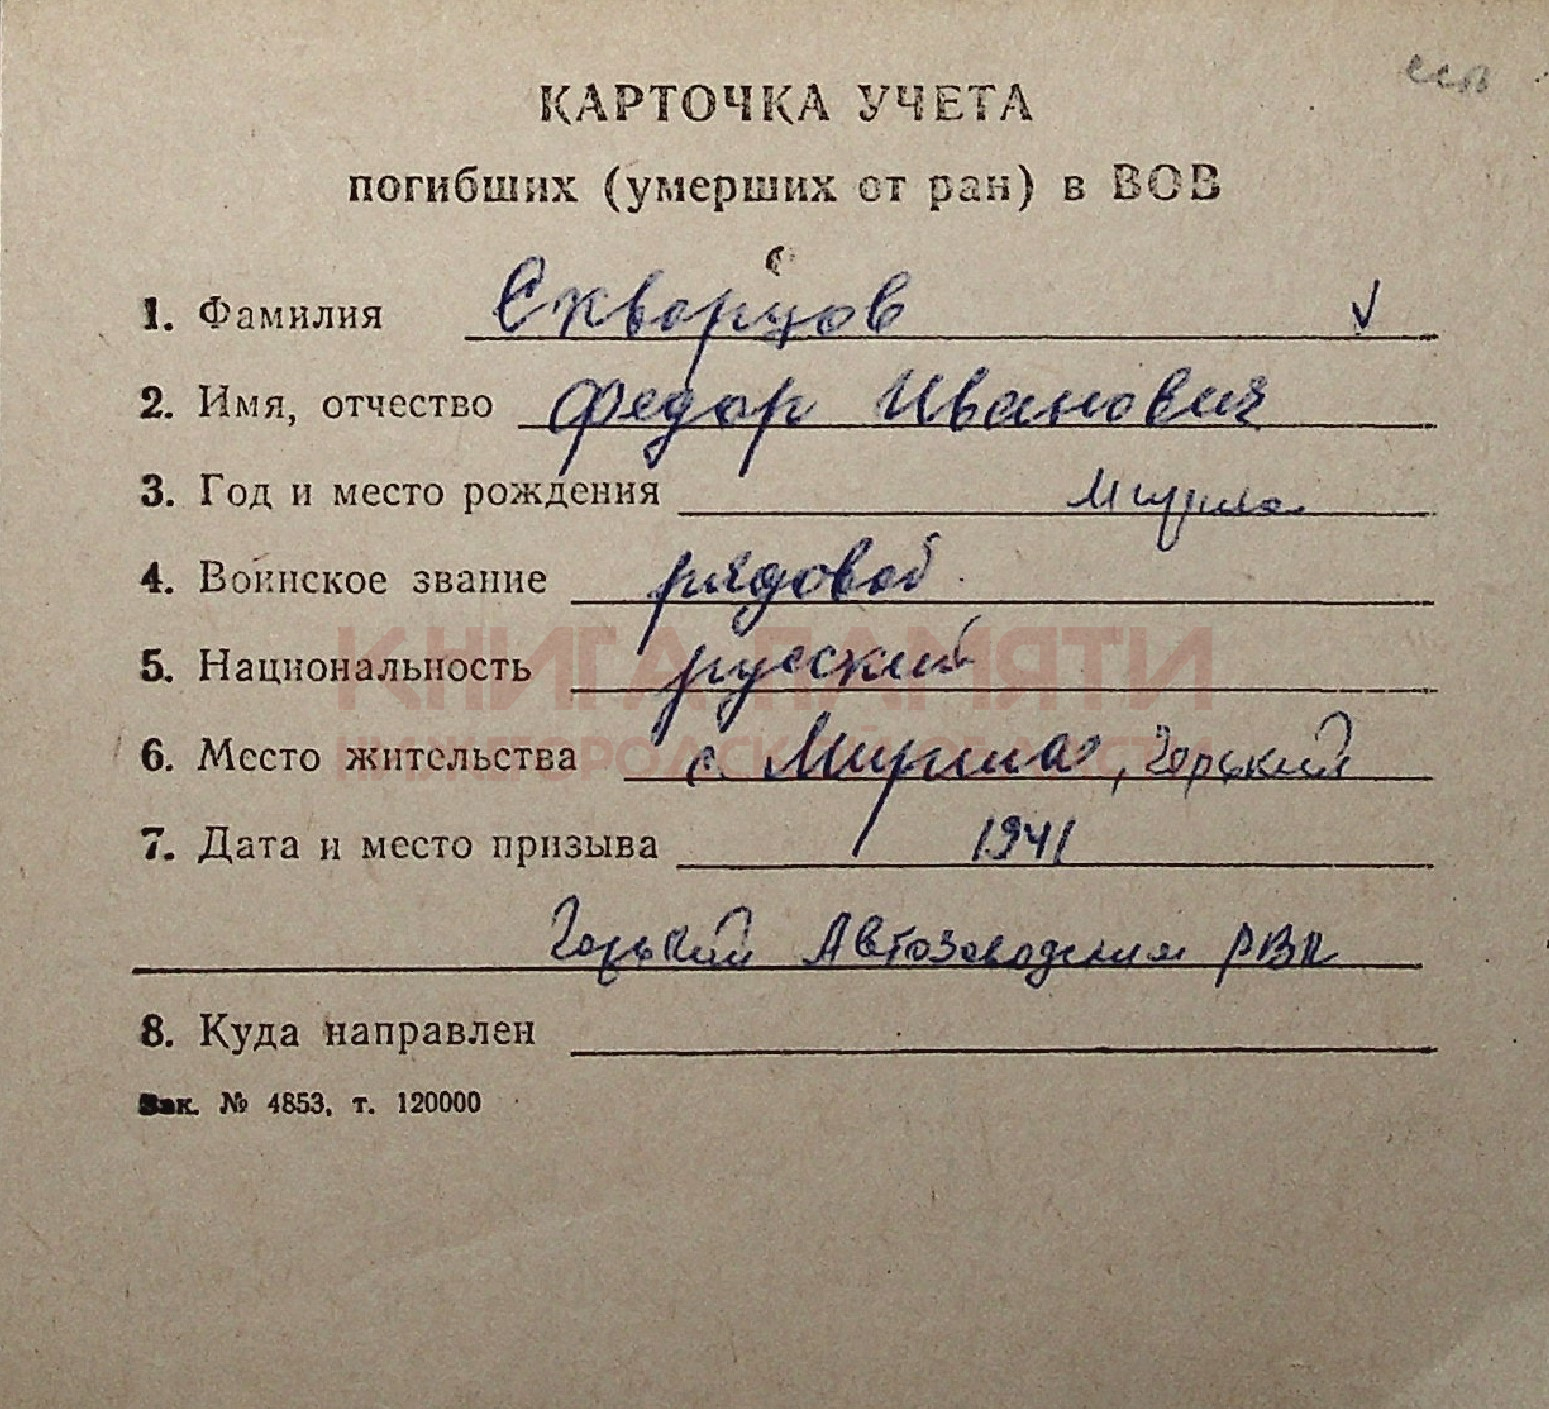 КАРТОЧКА УЧЕТА
погибших (умерших от ран) в ВОВ
1. Фамилия Скворцов
2. Имя, отчество Федор Иванович
3. Год и место рождения
4. Воинское звание рядовой
5. Национальность русский
КНИГА ПАМЯТИ
6. Место жительства с. , Горький
НИЖЕГОРОДСКОЙ ОБЛАСТИ
7. Дата и место призыва 1941
Горький Автозаводский РВК
8. Куда направлен
Зак. № 4853, т. 120000